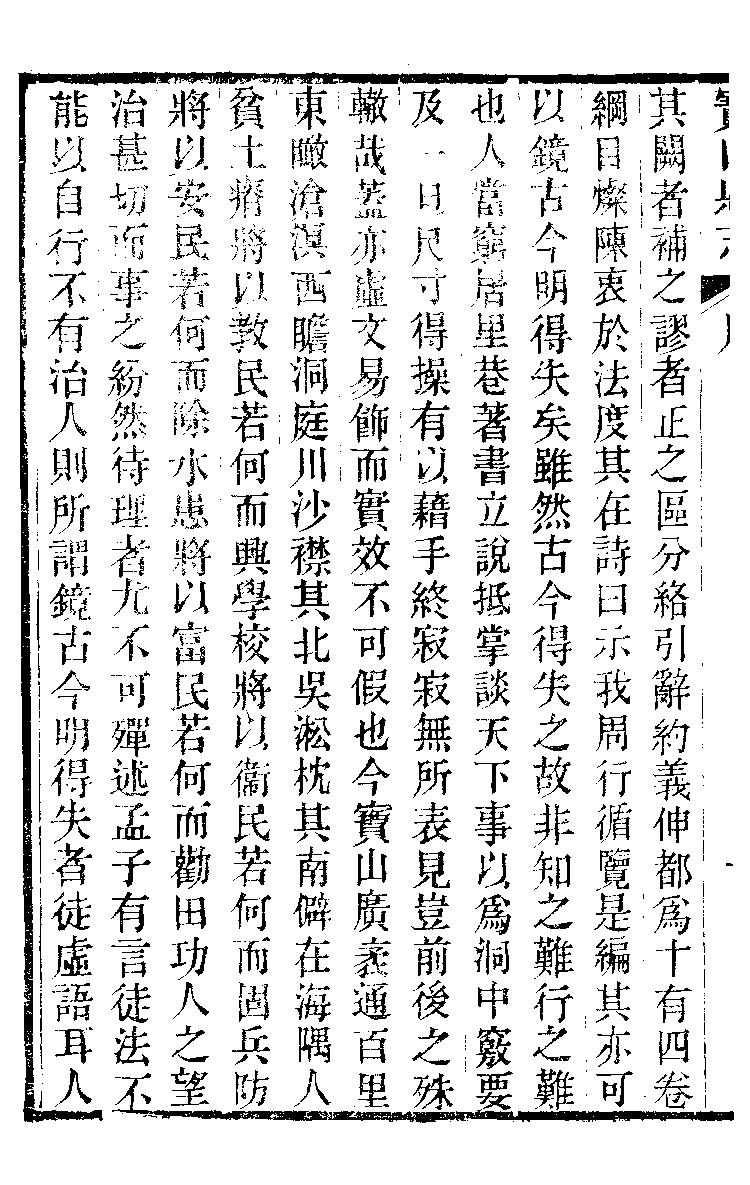 其闕者補之謬者正之區分絡引辭約義伸都爲十有四卷
綱目燦陳衷於法度其在詩曰示我周行循覽是編其亦可
以鏡古今明得失矣雖然古今得失之故非知之難行之難
也人當窮居里巷著書立說抵掌談天下事以爲洞中竅要
及一旦尺寸得操有以藉手終寂寂無所表見豈前後之殊
轍哉蓋亦虛文易飾而實效不可假也今寶山廣袤通百里
東瞰滄溟西瞻洞庭川沙襟其北吳淞枕其南僻在海隅人
貧土瘠將以教民若何而興學校將以衞民若何而固兵防
將以安民若何而除水患將以富民若何而勸田功人之望
治甚切而事之紛然待理者尤不可殫述孟子有言徒法不
能以自行不有治人則所謂鏡古今明得失者徒虛語耳人